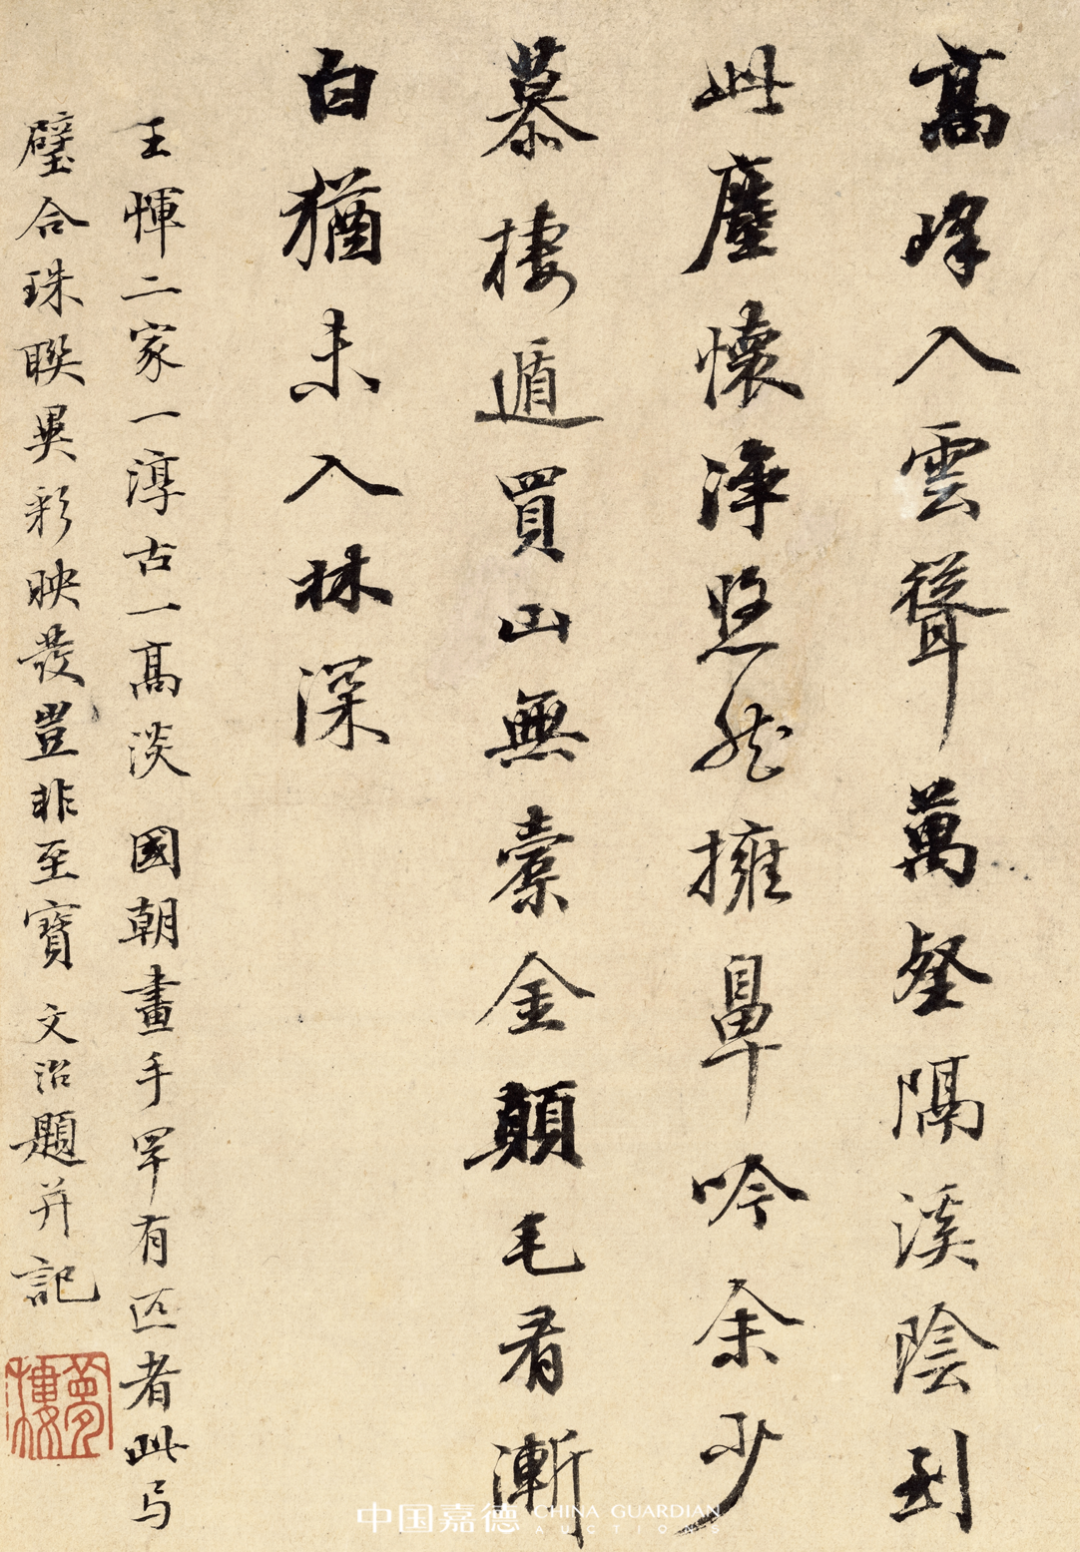 高峰入雲聳萬壑隔溪陰到
此塵懷淨悠然擁鼻吟余少
慕棲遁買山無橐金顛毛看漸
白猶未入林深
王惲二家一淳古一高淡國朝畫手罕有匹者此与
璧合珠聯異彩映發豈非至寶文治題并記
夢樓
中国嘉德 CHINA GUARDIAN
AUCTIONS